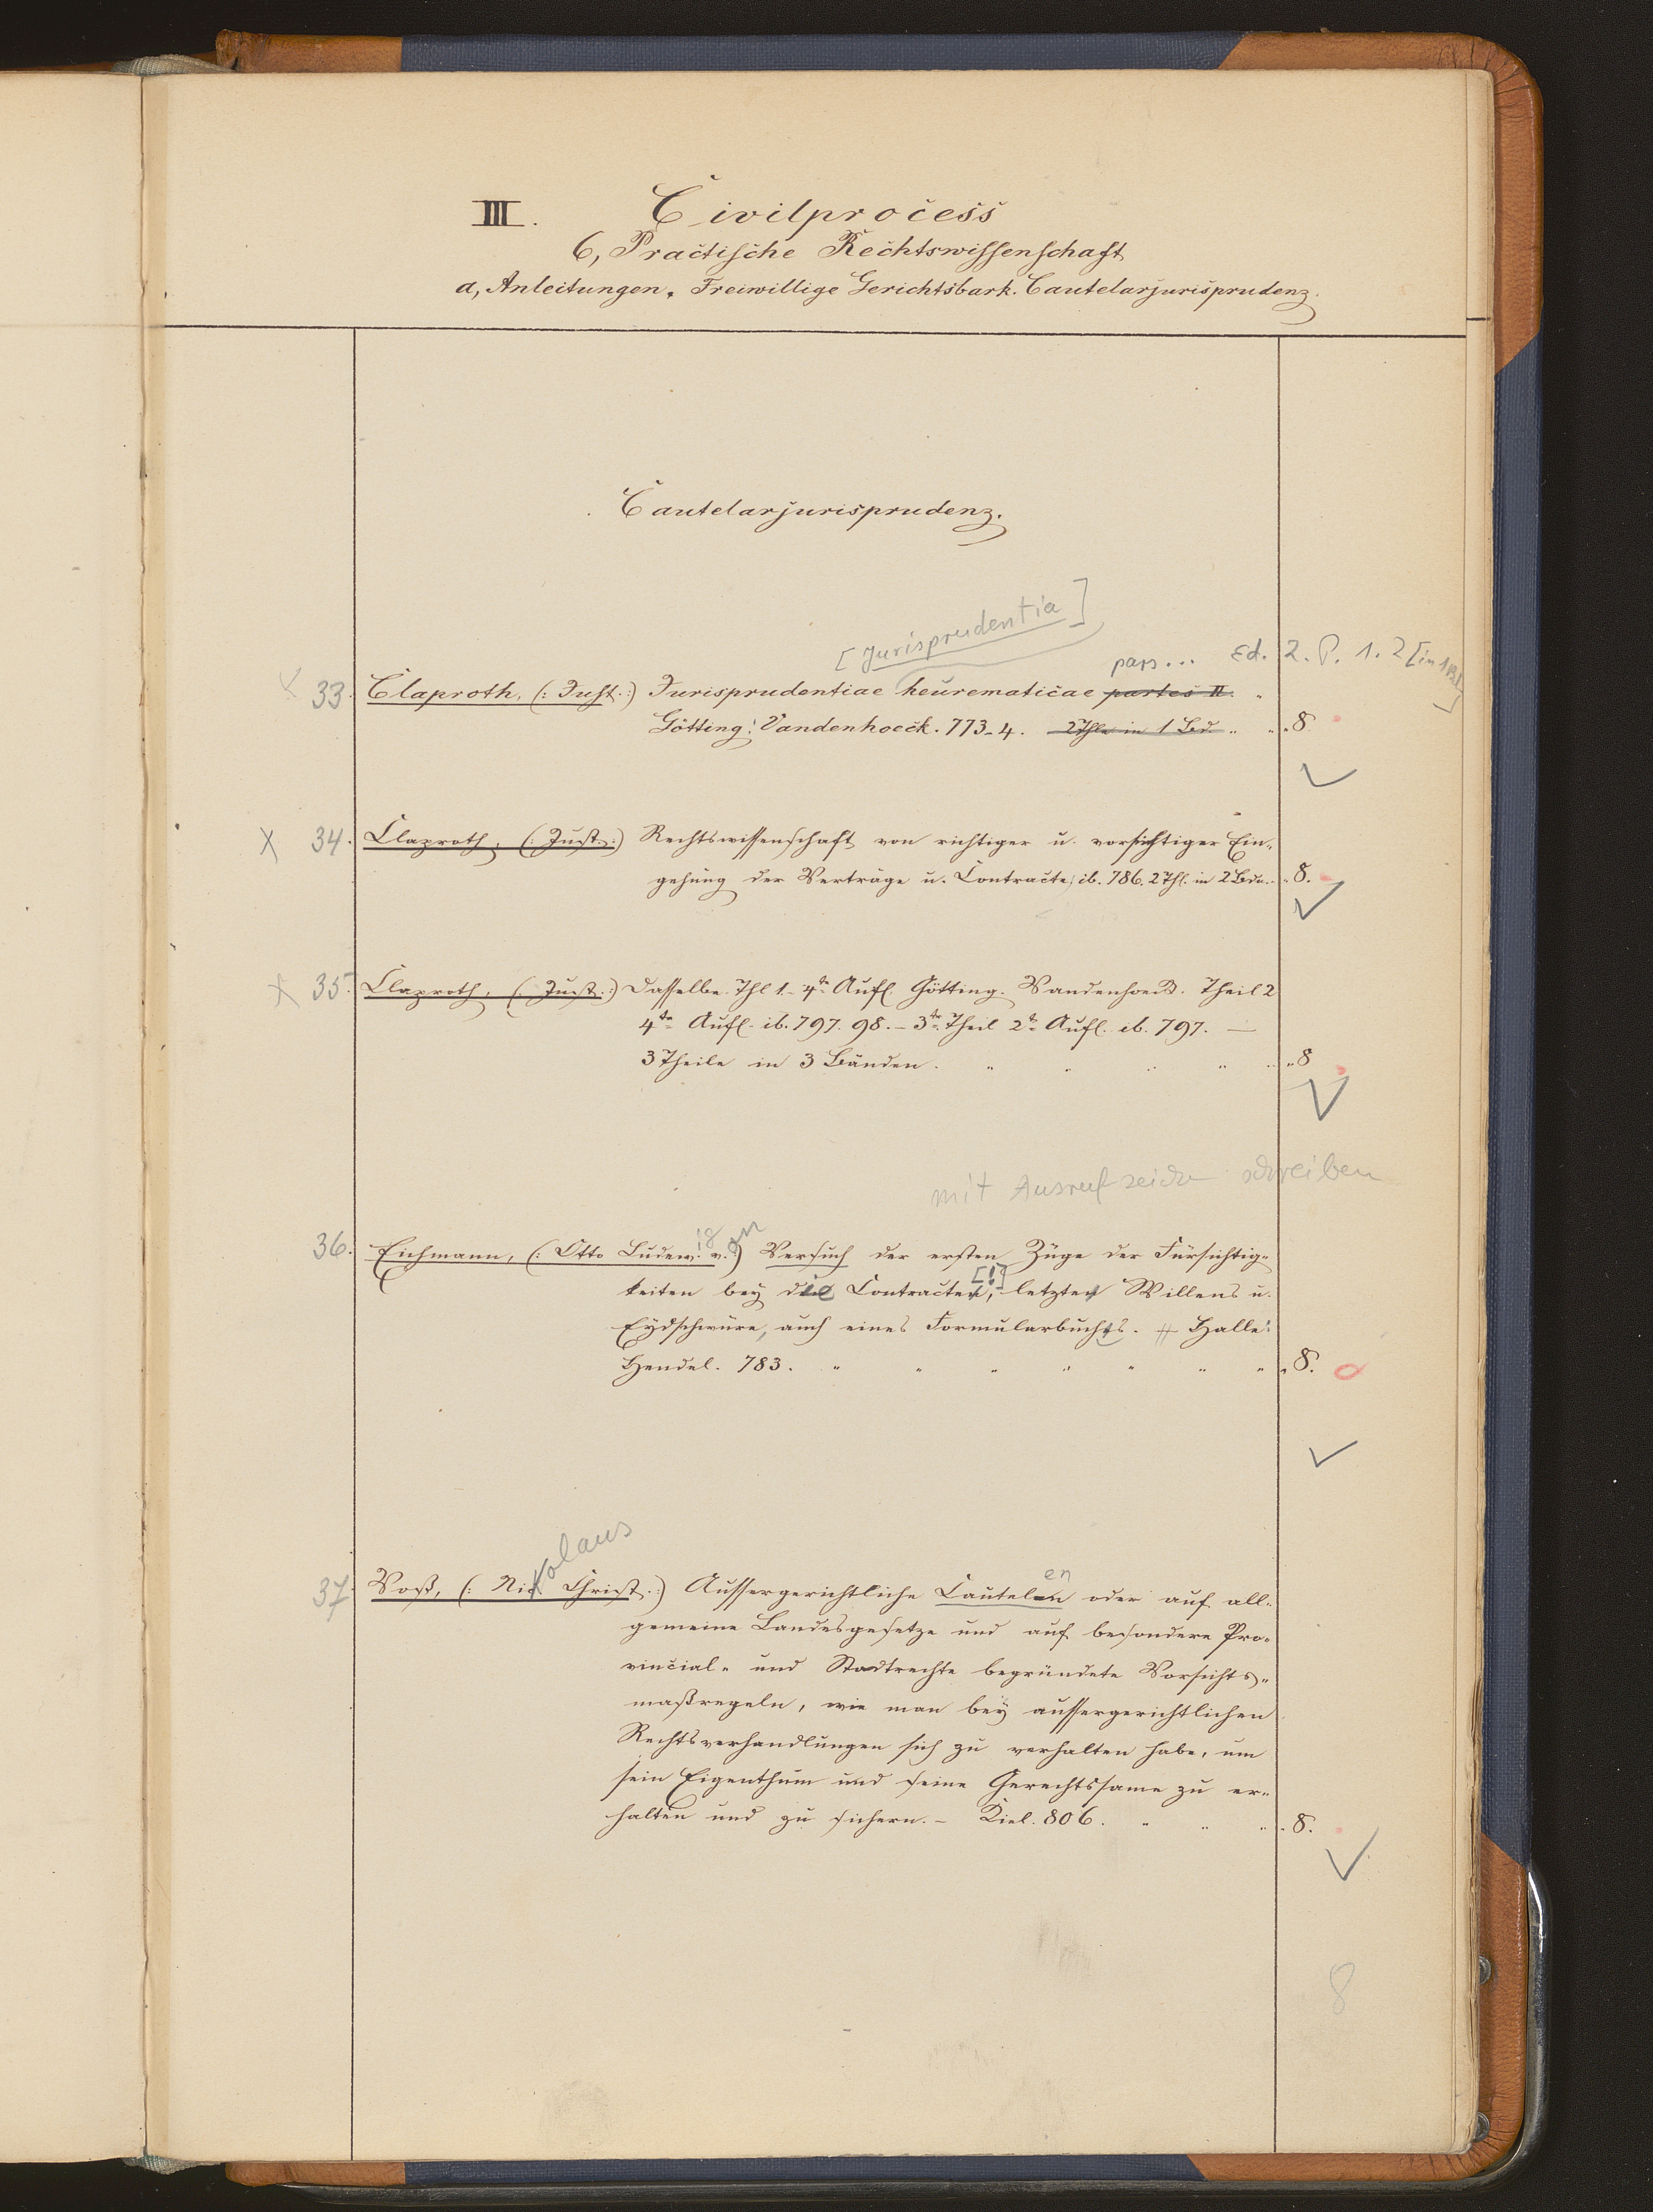 III. Civilprocess
6, Practische Rechtswissenschaft
a, Anleitungen. Freiwillige Gerichtsbark. Cautelarjurisprudenz.
Cautelarjurisprudenz.
[Jurisprudentia]
pars... Ed. 2. P. 1. 2 [in 1 Bd.]
33. Claproth, (: Just. :) Jurisprudentiae heurematicae partes II.
Götting: Vandenhoeck. 773-4. 2 Thle in 1 Bd. 8.
34. Claproth, (: Just. :) Rechtswissenschaft von richtiger u. vorsichtiger Ein-
gehung der Verträge u. Contracte, ib. 786. 2 Thl. in 2 Bdn. 8.
35. Claproth, (: Just. :) Dasselbe. Thl 1.- 4te Aufl. Götting. Vandenhoeck. Theil 2
4te Aufl. ib. 797. 98. - 3ter Theil 2te Aufl. ib. 797. —
3 Theile in 3 Bänden. 8
mit Ausrufzeichen schreiben
ig on
36. Eichmann, (: Otto Ludew. v. :) Versuch der ersten Züge der Fürsichtig-
keiten bey die Contracten, [!] letzten Willens u.
Eydschwüre, auch eines Formularbuchs. # Halle:
Hendel. 783. 8.
kolaus
en
37. Voß, (: Nic Christ. :) Aussergerichtliche Cautelen oder auf all-
gemeine Landesgesetze und auf besondere Pro-
vincial- und Stadtrechte begründete Vorsichts-
maßregeln, wie man bey aussergerichtlichen
Rechtsverhandlungen sich zu verhalten habe, um
sein Eigenthum und seine Gerechtssame zu er-
halten und zu sichern. - Kiel. 806. 8.
8